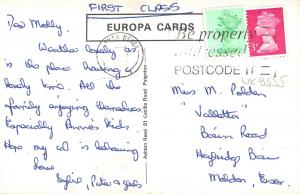 FIRST CLASS
EUROPA CARDS
Be properly
addressed
POSTCODE IT
Dear Molly,
Weather lovely
is the place having a
lovely time. All the
family enjoying themselves.
Especially Annes kids.
Hope my cat is behaving
Love
Sylvie, Peter & girls
Ashton Road 21 Cecilia Road Paignton
Miss M. Polden
"Valletta"
Road
Heybridge
Maldon, Essex.